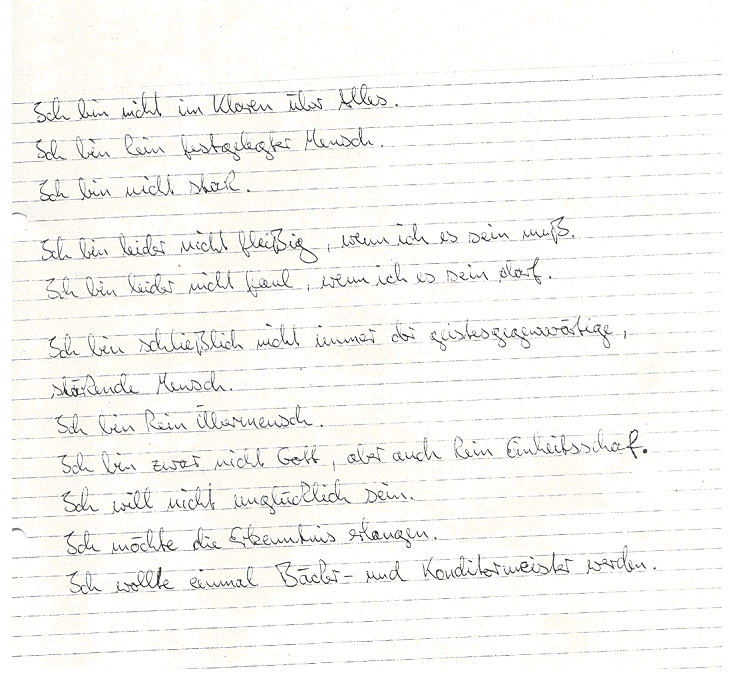 Ich bin nicht im Klaren über Alles.
Ich bin kein festgelegter Mensch.
Ich bin nicht stark.
Ich bin leider nicht fleißig, wenn ich es sein muß.
Ich bin leider nicht faul, wenn ich es sein darf.
Ich bin schließlich nicht immer der geistesgegenwärtige,
stärkende Mensch.
Ich bin kein Übermensch.
Ich bin zwar nicht Gott, aber auch kein Einheitsschaf.
Ich will nicht unglücklich sein.
Ich möchte die Erkenntnis erlangen.
Ich wollte einmal Bäcker- und Konditormeister werden.